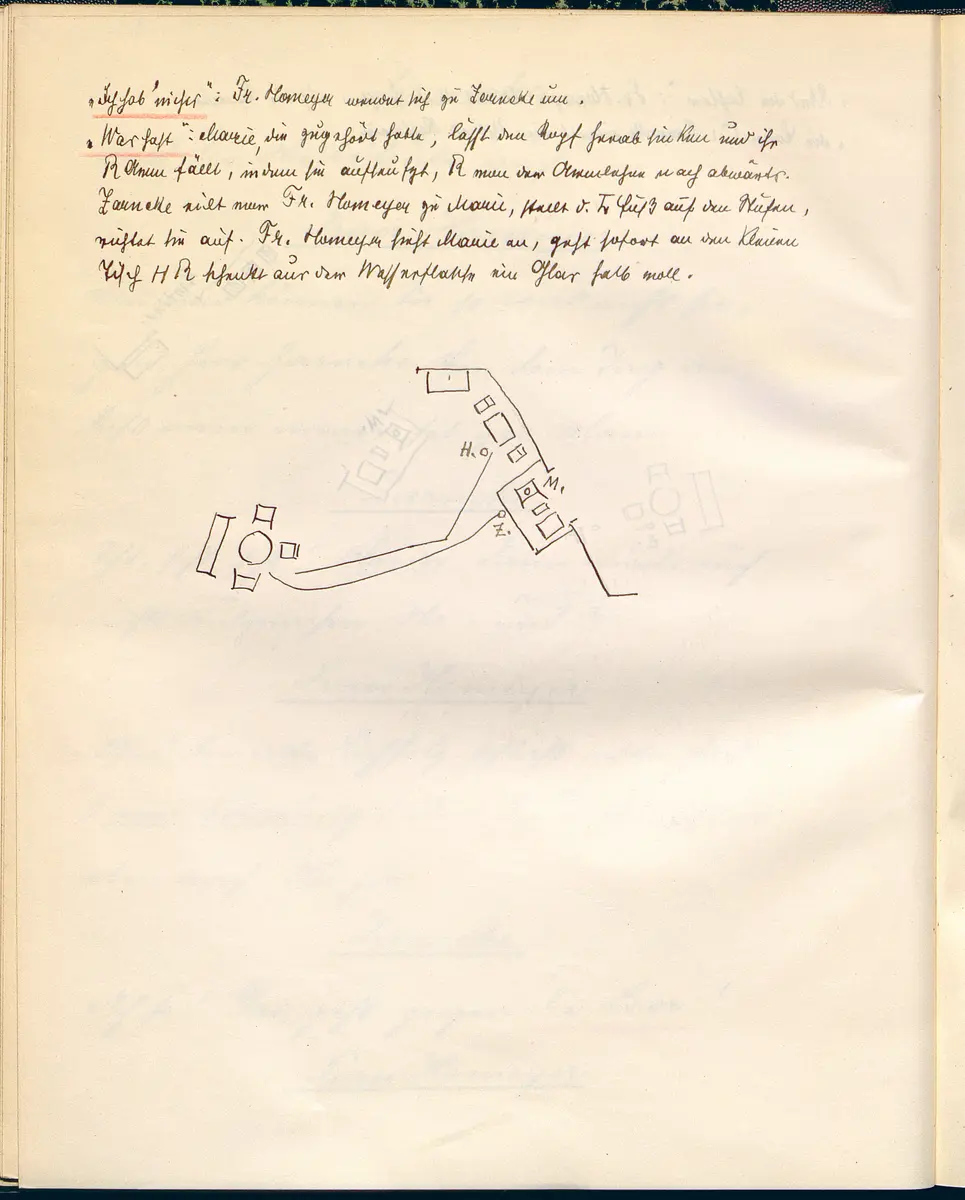 „Ich hab' nichts“: Fr. Homeyer wendet sich zu Zarncke um.
„Was hast“: Marie, die zugehört hatte, läßt den Kopf herab sinken und ihr
R Arm fällt, indem sie aufseufzt, R von der Armlehne nach abwärts.
Zarncke eilt vor Fr. Homeyer zu Marie, stellt d. L Fuß auf den Stufen,
richtet sie auf. Fr. Homeyer sieht Marie an, geht sofort an den kleinen
Tisch H R schenkt aus der Wasserflasche ein Glas halb voll.
H.
M.
Z.